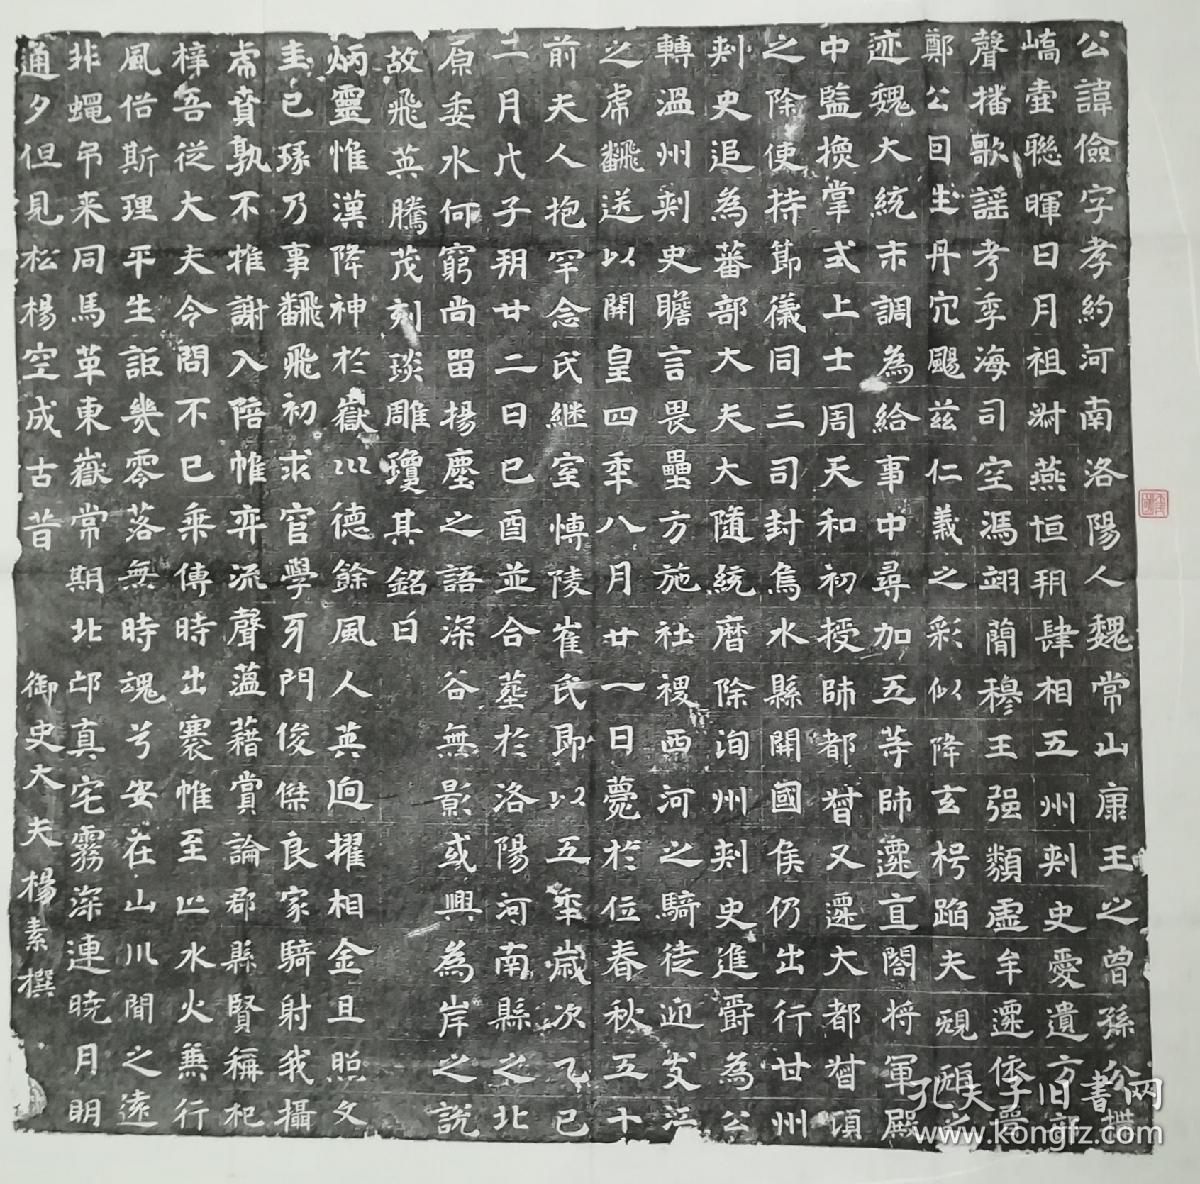 公諱儉字孝約河南洛陽人魏常山康王之曾孫
嶠壺聡暉日月祖㴋燕恒朔肆相五州刺史愛遺方
聲播歌謡考季海司空馮翊蕳穆王强纇虛牟遷依晉
鄭公曰生丹穴颺兹仁義之彩似降玄枵踰夫
迹魏大統末調為給事中尋加五等師遷直閤将軍殿
中監換掌式上士周天和初授師都督又遷大都督項
之除使持節儀同三司封烏水縣開國侯仍出行廿州
刺史追為蕃部大夫大隨統曆除洵州刺史進爵為公
轉溫州刺史瞻言畏壘方施社稷西河之騎徒迎
之席飜送以開皇四年八月廿一日薨於位春秋五十
前夫人抱罕念氏継室慱陵崔氏即以五年歲次乙巳
二月戊子朔廿二日巳酉並合塟於洛陽河南縣之北
原委水何窮尚留揚塵之語深谷無影或興為岸之說
故飛英騰茂刻琰雕瓊其銘曰
炳靈惟漢降神於嶽以德餘風人英迥擢相金旦照文
圭已琢乃事飜飛初求官學牙門俊傑良家騎射我攝
席賁孰不推謝入陪帷弈流聲藴藉賞論郡縣賢稱杞
梓吾従大夫今問不已乘傳時出褰帷至止水火兼行
風俗斯理平生詎幾零落無時魂兮安在山川閒之逺
非蠅弔来同馬革東嶽常期北邙真宅霧深連曉月明
通夕但見松楊空成古昔
御史大夫楊素撰
孔夫子旧書网
www.kongfz.com